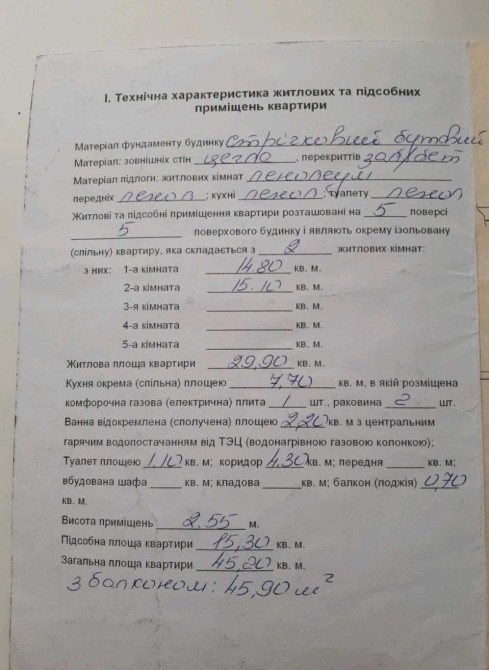 І. Технічна характеристика житлових та підсобних
приміщень квартири
Матеріал фундаменту будинку стрічковий бутовий
Матеріал: зовнішніх стін цегла, перекриттів зал/бет
Матеріал підлоги: житлових кімнат лінолеум
передніх лінол; кухні лінол; туалету лінол
Житлові та підсобні приміщення квартири розташовані на 5 поверсі
5 поверхового будинку і являють окрему ізольовану
(спільну) квартиру, яка складається з 2 житлових кімнат:
з них: 1-а кімната 14.80 кв. м.
2-а кімната 15.10 кв. м.
3-я кімната кв. м.
4-а кімната кв. м.
5-а кімната кв. м.
Житлова площа квартири 29,90 кв. м.
Кухня окрема (спільна) площею 7,70 кв. м, в якій розміщена
комфорочна газова (електрична) плита 1 шт., раковина 2 шт.
Ванна відокремлена (сполучена) площею 2,20 кв. м з центральним
гарячим водопостачанням від ТЭЦ (водонагрівною газовою колонкою);
Туалет площею 1.10 кв. м; коридор 4.30 кв. м; передня кв. м;
вбудована шафа кв. м; кладова кв. м; балкон (лоджія) 0,70
кв. м.
Висота приміщень 2,55 м.
Підсобна площа квартири 15,30 кв. м.
Загальна площа квартири 45,20 кв. м.
з балконом: 45,90 м²